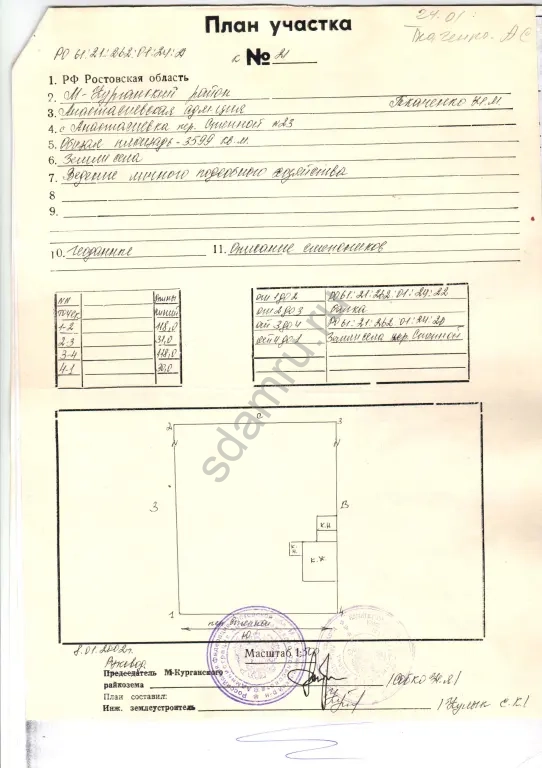 24.01.
План участка
Ткаченко АС
РО 61:21:262:01:24:2
к № 21
1. РФ Ростовская область
2. М-Курганский район
3. Анастасиевская адм-ция Ткаченко Н.М
4. с Анастасиевка пер. Степной №23
5. Общая площадь - 3599 кв.м.
6. Земли села
7. Ведение личного подсобного хозяйства
8
9.
10. Геоданные 11. Описание смежников
NN Длины
точек линий
1-2 118,0
2-3 31,0
3-4 118,0
4-1 30,0
от 1 до 2 РО 61:21:262:01:24:22
от 2 до 3 балка
от 3 до 4 РО 61:21:262:01:24:20
от 4 до 1 Земли села пер. Степной
С
2 3
З В
К.Н
К.Ж.
1 4
пер Степной
Ю
8.01.2002г.
Масштаб 1:500
Председатель М-Курганского
райкозема
План составил:
Инж. землеустроитель
sdamru.ru